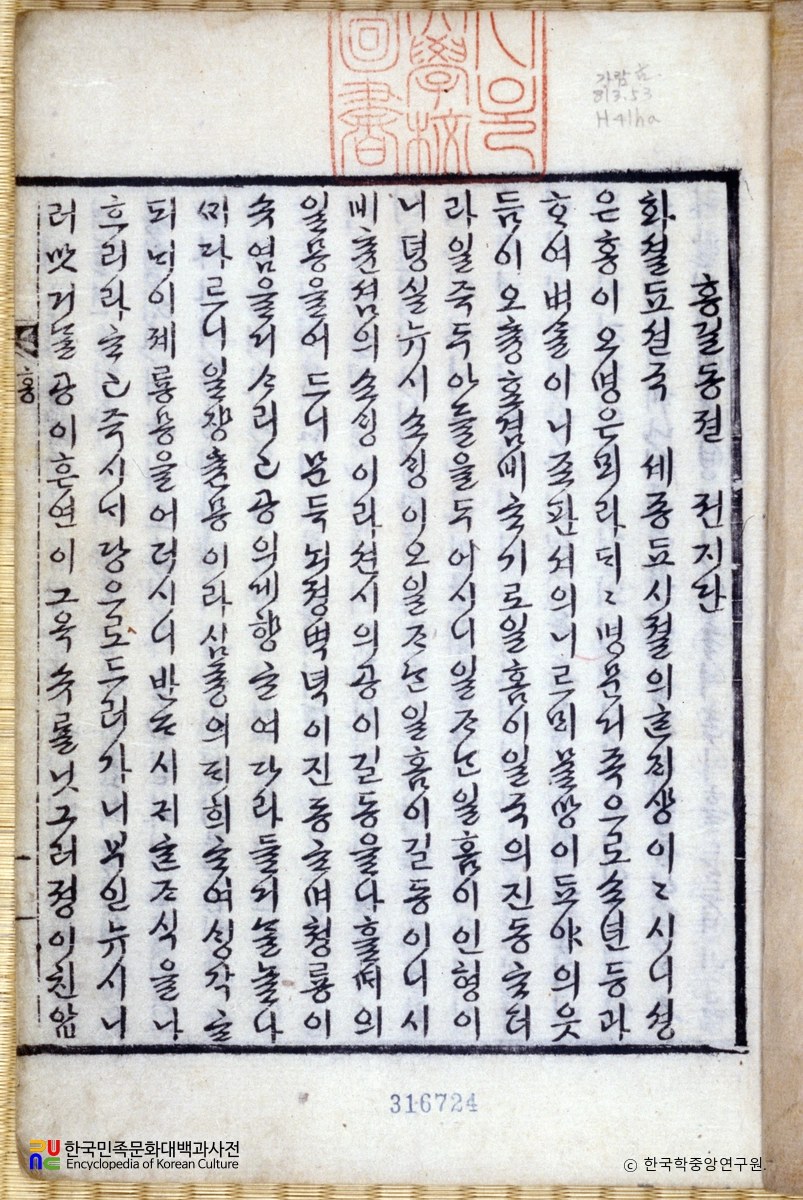 서울
大學校
圖書
가람 古
813.53
H41ha
홍길동젼 권지단
화셜됴션국 셰종됴시졀의ᄒᆞᆫᄌᆡ상이〻시니셩
은홍이오명은뫼라ᄃᆡ〻명문거죡으로소년등과
ᄒᆞ여벼ᄉᆞᆯ이니조판셔의니르ᄆᆡ물망이됴야의읏
듬이오츙효겸비ᄒᆞ기로일홈이일국의진동ᄒᆞ더
라일즉두아ᄃᆞᆯ을두어시니일ᄌᆞᄂᆞᆫ일홈이인형이
니뎡실뉴시소ᄉᆡᆼ이오일ᄌᆞᄂᆞᆫ일홈이길동이니시
비츈셤의소ᄉᆡᆼ이라션시의공이길동을나흘ᄯᆡ의
일몽을어드니문득뇌졍벽녁이진동ᄒᆞ며쳥룡이
수염을거ᄉᆞ리고공의게향ᄒᆞ여다라들거ᄂᆞᆯ놀나
ᄭᆡ다르니일쟝츈몽이라심즁의ᄃᆡ희ᄒᆞ여ᄉᆡᆼ각ᄒᆞ
되ᄂᆡ이졔룡몽을어더시니반ᄃᆞ시귀ᄒᆞᆫᄌᆞ식을나
흐리라ᄒᆞ고즉시ᄂᆡ당으로드러가니부인뉴시니
러맛거ᄂᆞᆯ공이흔연이그옥수를닛그러졍이친압
홍
316724
한국민족문화대백과사전
Encyclopedia of Korean Culture
ⓒ 한국학중앙연구원